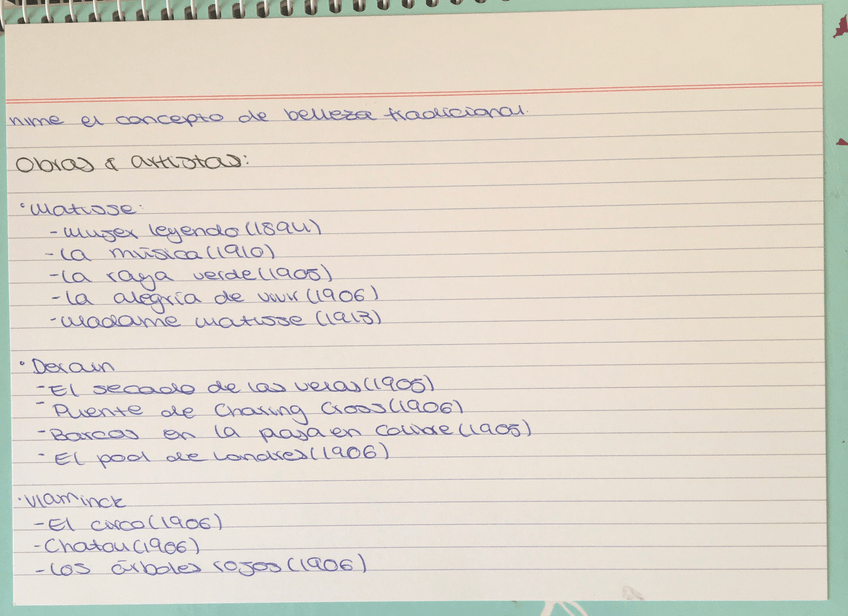 nime el concepto de belleza tradicional.
Obras & artistas:
•Matisse:
-Mujer leyendo (1894)
-La música (1910)
-La raya verde (1905)
-La alegría de vivir (1906)
-Madame Matisse (1913)
•Derain
-El secado de las velas (1905)
-Puente de Charing Cross (1906)
-Barcos en la playa en Colliure (1905)
-El pool de Londres (1906)
•Vlaminck
-El circo (1906)
-Chatou (1906)
-Los árboles rojos (1906)